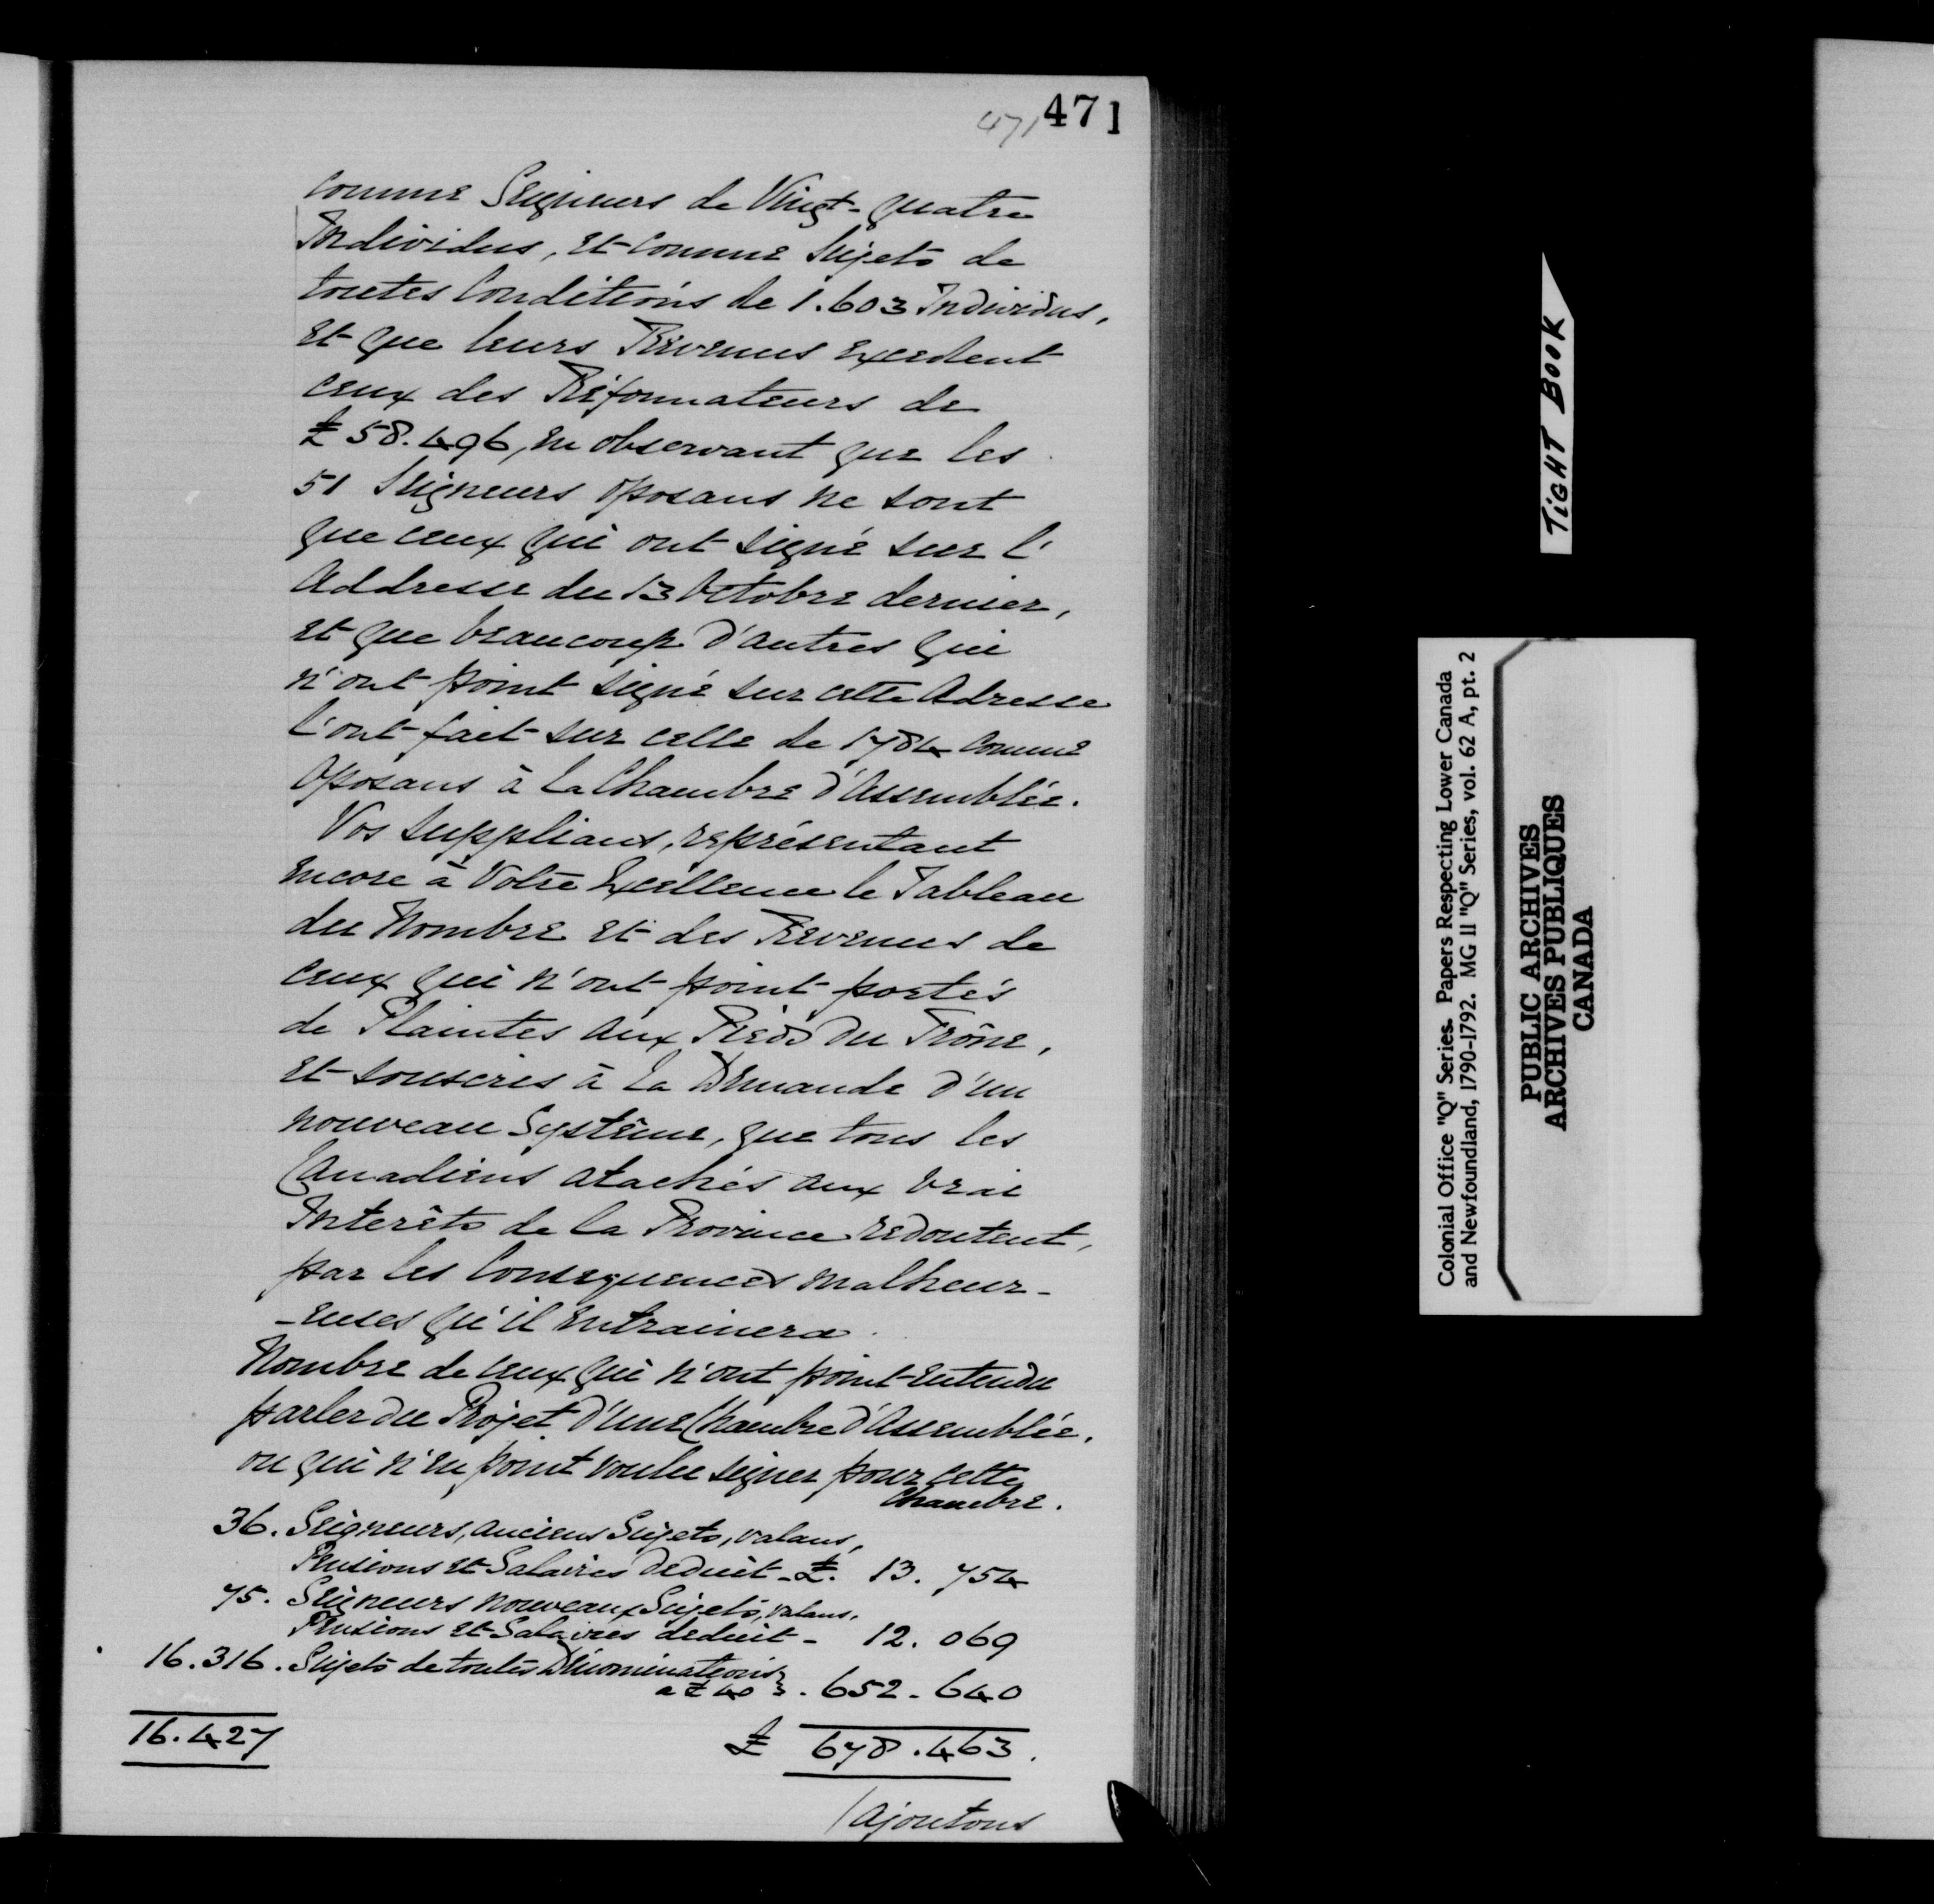 471 471
comme Seigneurs de Vingt-quatre
Individus, et comme Sujets de
toutes Conditions de 1.603 Individus,
et que leurs Revenus excedent
ceux des Réformateurs de
£ 58.496, en observant que les
51 Seigneurs oposans ne sont
que ceux qui ont signé sur l'
Addresse du 13 Octobre dernier,
et que beaucoup d'autres qui
n'ont point signé sur cette Adresse
l'ont fait sur celle de 1784 comme
oposans à la Chambre d'Assemblée.
Vos Supplians, représentant
encore à Votre Excellence le Tableau
du Nombre et des Revenus de
ceux qui n'ont point portés
de Plaintes aux Pieds du Trône,
et souscris à la Demande d'un
nouveau Systême, que tous les
Canadiens atachés aux vrai
Interêts de la Province redoutent,
par les Consequences malheur-
-euses qu'il entrainera.
Nombre de ceux qui n'ont point entendu
parler du Projet d'une Chambre d'Assemblée,
ou qui n'en point voulu signer pour cette
Chambre.
36. Seigneurs, anciens Sujets, valans,
Pensions et Salaires deduit - £. 13. 754
75. Seigneurs nouveaux Sujets, valans,
Pensions et Salaires deduit - 12. 069
16.316. Sujets de toutes Dénominations
a £ 40 } . 652. 640
16.427 £ 678.463.
/Ajoutons
TiGHT BOOK
Colonial Office "Q" Series. Papers Respecting Lower Canada
and Newfoundland, 1790-1792. MG 11 "Q" Series, vol. 62 A, pt. 2
PUBLIC ARCHIVES
ARCHIVES PUBLIQUES
CANADA